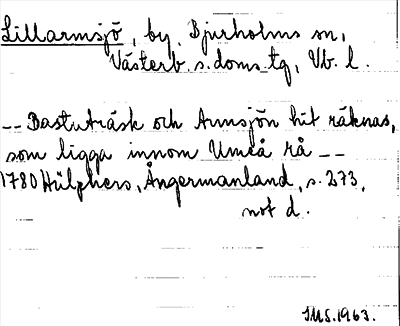 Lillarmsjö, by, Bjurholms sn,
Västerb. s:doms tg, Vb. l.
-- Bastuträsk och Armsjön hit räknas,
som ligga innom Umeå rå --
1780 Hülphers, Ångermanland, s. 273,
not d.
IMS. 1963.